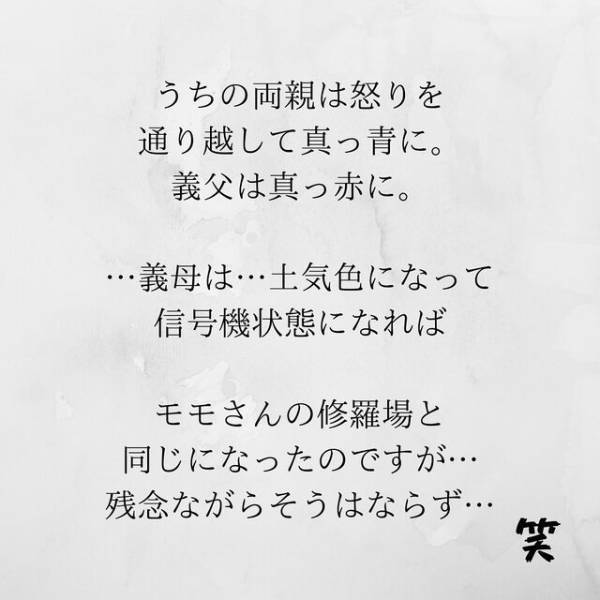 うちの両親は怒りを
通り越して真っ青に。
義父は真っ赤に。
…義母は…土気色になって
信号機状態になれば
モモさんの修羅場と
同じになったのですが…
残念ながらそうはならず…
笑